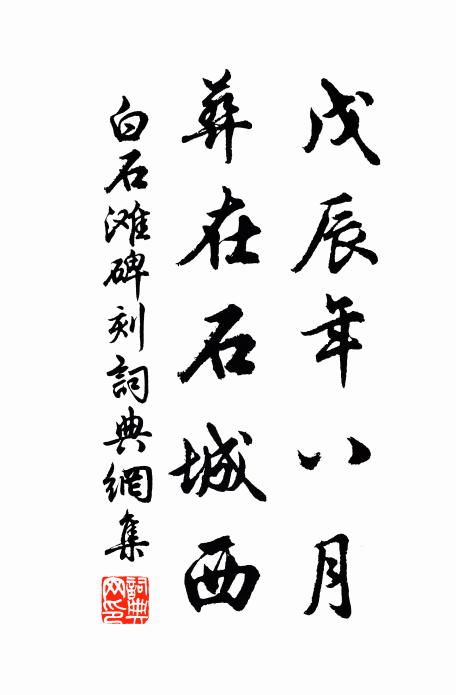 戊辰年八月
葬在石城西
白石滩碑刻詞典網集
詞典网印